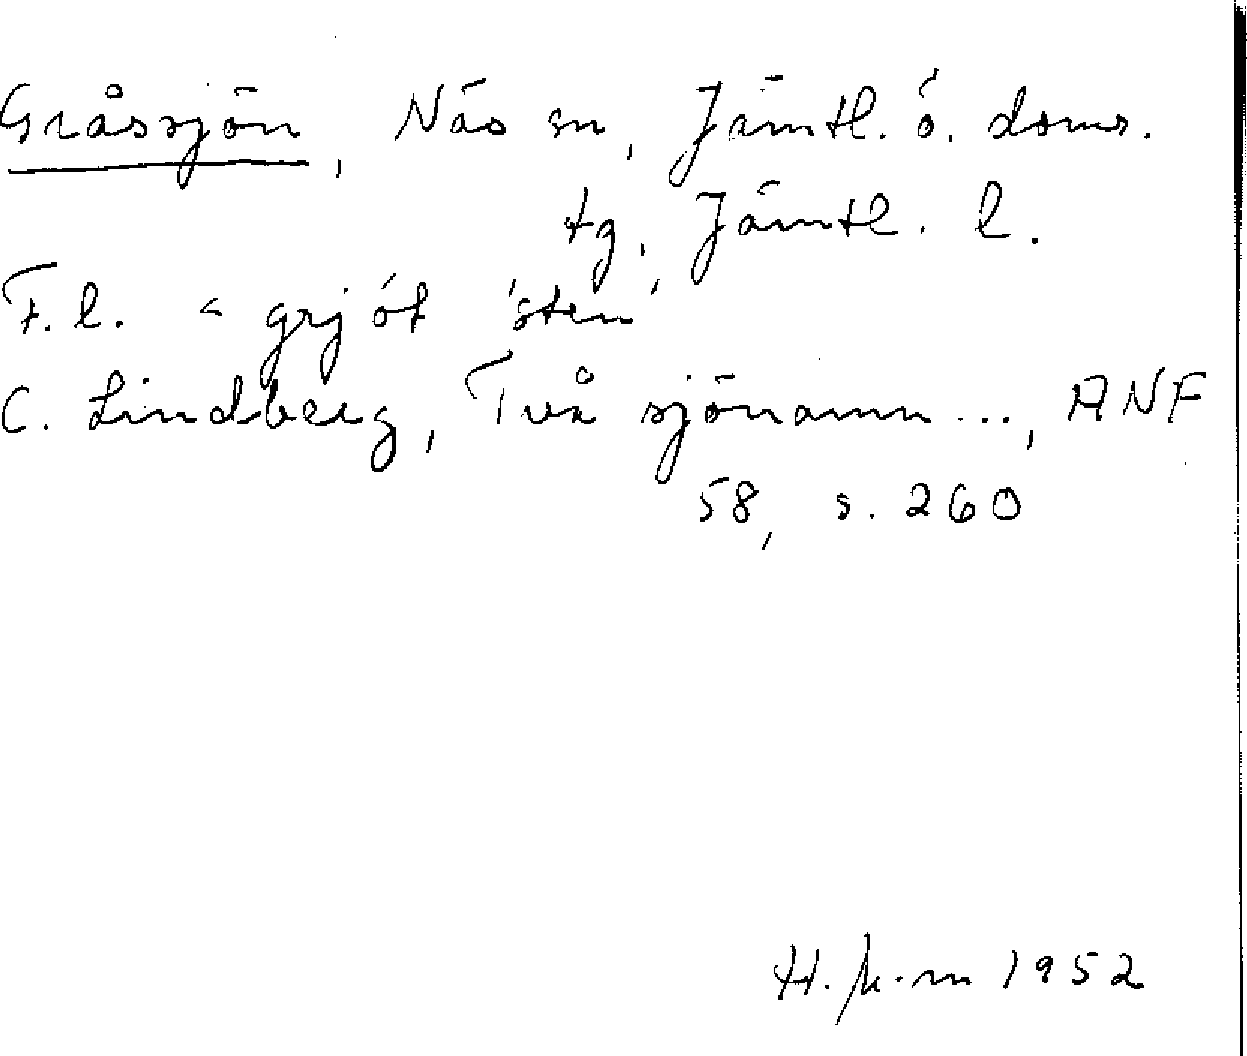 Gråssjön, Näs sn, Jämtl. ö. doms.
tg, Jämtl. l.
F.l. < grjót 'sten'
C. Lindberg, Två sjönamn ..., ANF
58, s. 260
1952